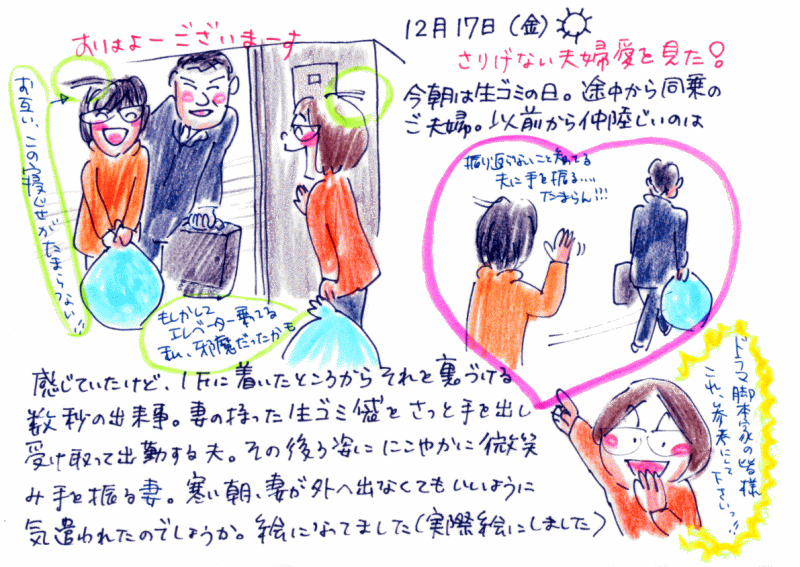 12月17日（金）
さりげない夫婦愛を見た!
おはよーございまーす
今朝は生ゴミの日。途中から同乗の
ご夫婦。以前から仲睦じいのは
お互い、この寝ぐせがたまらない!!
もしかして
エレベーター乗ってる
私、邪魔だったかも
振り返らないこと知ってる
夫に手を振る....
たまらん!!!
感じていたけど、1Fに着いたところからそれを裏づける
数秒の出来事。妻の持った生ゴミ袋をさっと手を出し
受け取って出勤する夫。その後ろ姿ににこやかに微笑
み手を振る妻。寒い朝、妻が外へ出なくてもいいように
気遣われたのでしょうか。絵になってました（実際絵にしました）
ドラマ脚本家の皆様
これ、参考にして
下さいっ!!